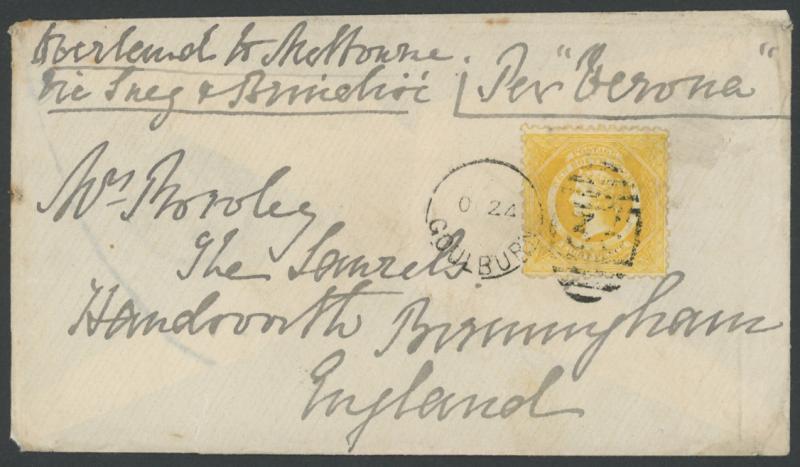 Overland to Melbourne.
Via Suez & Brindisi
Per "Verona"
Mrs Rowley
The Laurels
Handsworth Birmingham
England
O 24
GOULBURN